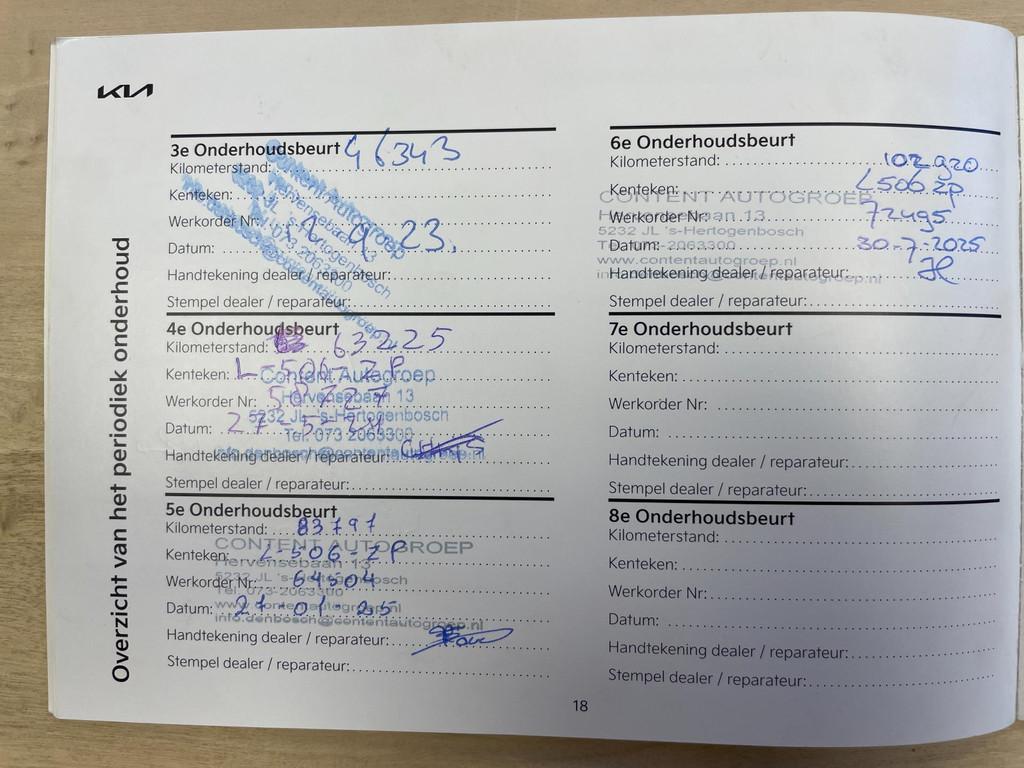 KIA
Overzicht van het periodiek onderhoud
3e Onderhoudsbeurt 46343
Kilometerstand:
Kenteken:
Werkorder Nr:
Datum: 9 23.
Handtekening dealer / reparateur:
Stempel dealer / reparateur:
Content Autogroep
Hervensebaan 13
5232 JL 's-Hertogenbosch
Tel. 073 2063300
info.denbosch@contentautogroep.nl
4e Onderhoudsbeurt
Kilometerstand: 63225
Kenteken: L-506-ZP
Werkorder Nr:
Datum: 27-5-24
Handtekening dealer / reparateur:
Stempel dealer / reparateur:
Content Autogroep
Hervensebaan 13
5232 JL 's-Hertogenbosch
Tel. 073 2063300
info.denbosch@contentautogroep.nl
5e Onderhoudsbeurt
Kilometerstand: 83797
Kenteken: L-506-ZP
Werkorder Nr: 64504
Datum: 21-01-25
Handtekening dealer / reparateur:
Stempel dealer / reparateur:
CONTENT AUTOGROEP
Hervensebaan 13
5232 JL 's-Hertogenbosch
Tel. 073-2063300
www.contentautogroep.nl
info.denbosch@contentautogroep.nl
6e Onderhoudsbeurt
Kilometerstand: 102920
Kenteken: L506ZP
Werkorder Nr: 72495
Datum: 30-7-2025
Handtekening dealer / reparateur:
Stempel dealer / reparateur:
CONTENT AUTOGROEP
Hervensebaan 13
5232 JL 's-Hertogenbosch
Tel. 073-2063300
www.contentautogroep.nl
info.denbosch@contentautogroep.nl
7e Onderhoudsbeurt
Kilometerstand:
Kenteken:
Werkorder Nr:
Datum:
Handtekening dealer / reparateur:
Stempel dealer / reparateur:
8e Onderhoudsbeurt
Kilometerstand:
Kenteken:
Werkorder Nr:
Datum:
Handtekening dealer / reparateur:
Stempel dealer / reparateur:
18